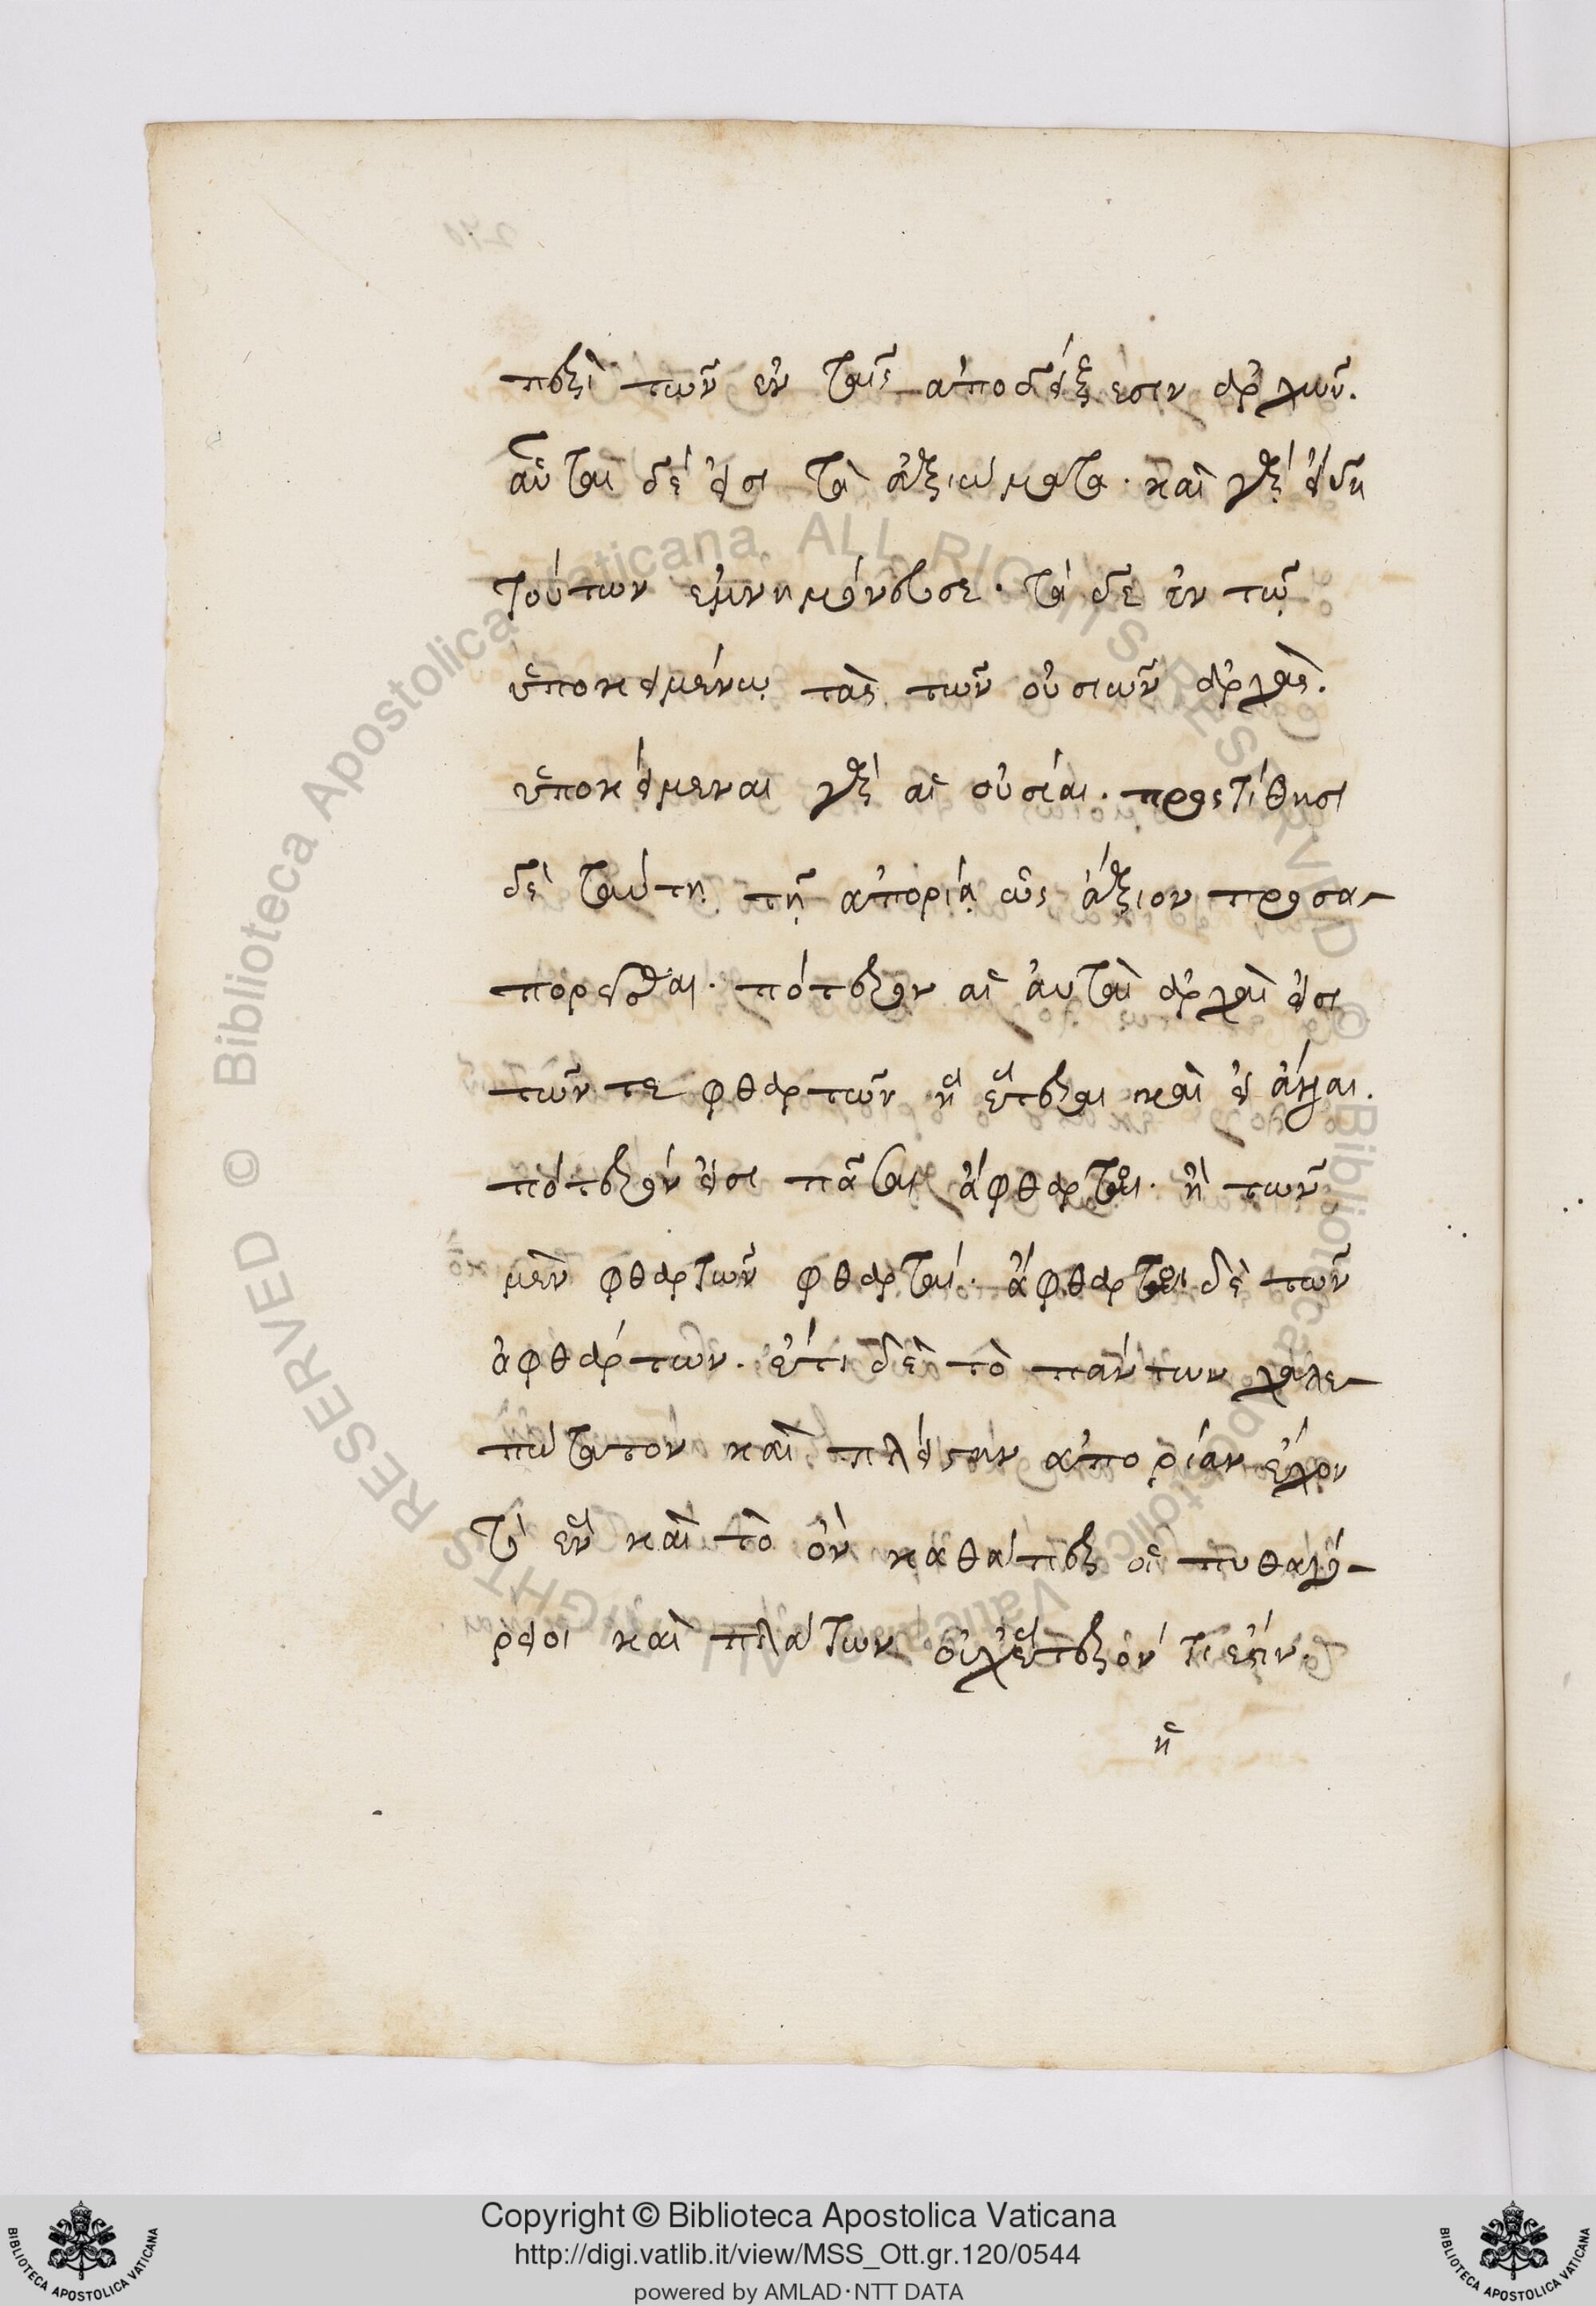 περὶ τῶν ἐν ταῖς ἀποδείξεσιν ἀρχῶν.
αὗται δέ εἰσι τὰ ἀξιώματα· καὶ γὰρ ἤδη
τούτων ἐμνημόνευσε· τὰ δὲ ἐν τῷ
ὑποκειμένῳ τὰς τῶν οὐσιῶν ἀρχάς.
ὑποκείμεναι γὰρ αἱ οὐσίαι. προστίθησι
δὲ ταύτῃ τῇ ἀπορίᾳ ὡς ἄξιον προσα-
πορεῖσθαι· πότερον αἱ αὐταὶ ἀρχαὶ εἰσι
τῶν τε φθαρτῶν ἢ ἕτεραι καὶ εἰ
πότερόν εἰσι πᾶσαι ἄφθαρτοι· ἢ τῶν
μὲν φθαρτῶν φθαρταί· ἄφθαρτοι δὲ τῶν
ἀφθάρτων. ἔτι δὲ τὸ πάντων χαλε-
πώτατον καὶ πλείστην ἀπορίαν ἔχον
τὸ ἓν καὶ τὸ ὂν καθάπερ οἱ πυθαγό-
ρειοι καὶ πλάτων οὐχ ἕτερόν τί ἐστιν.
ἢ
Copyright © Biblioteca Apostolica Vaticana
http://digi.vatlib.it/view/MSS_Ott.gr.120/0544
powered by AMLAD·NTT DATA
BIBLIOTECA APOSTOLICA VATICANA
BIBLIOTECA APOSTOLICA VATICANA